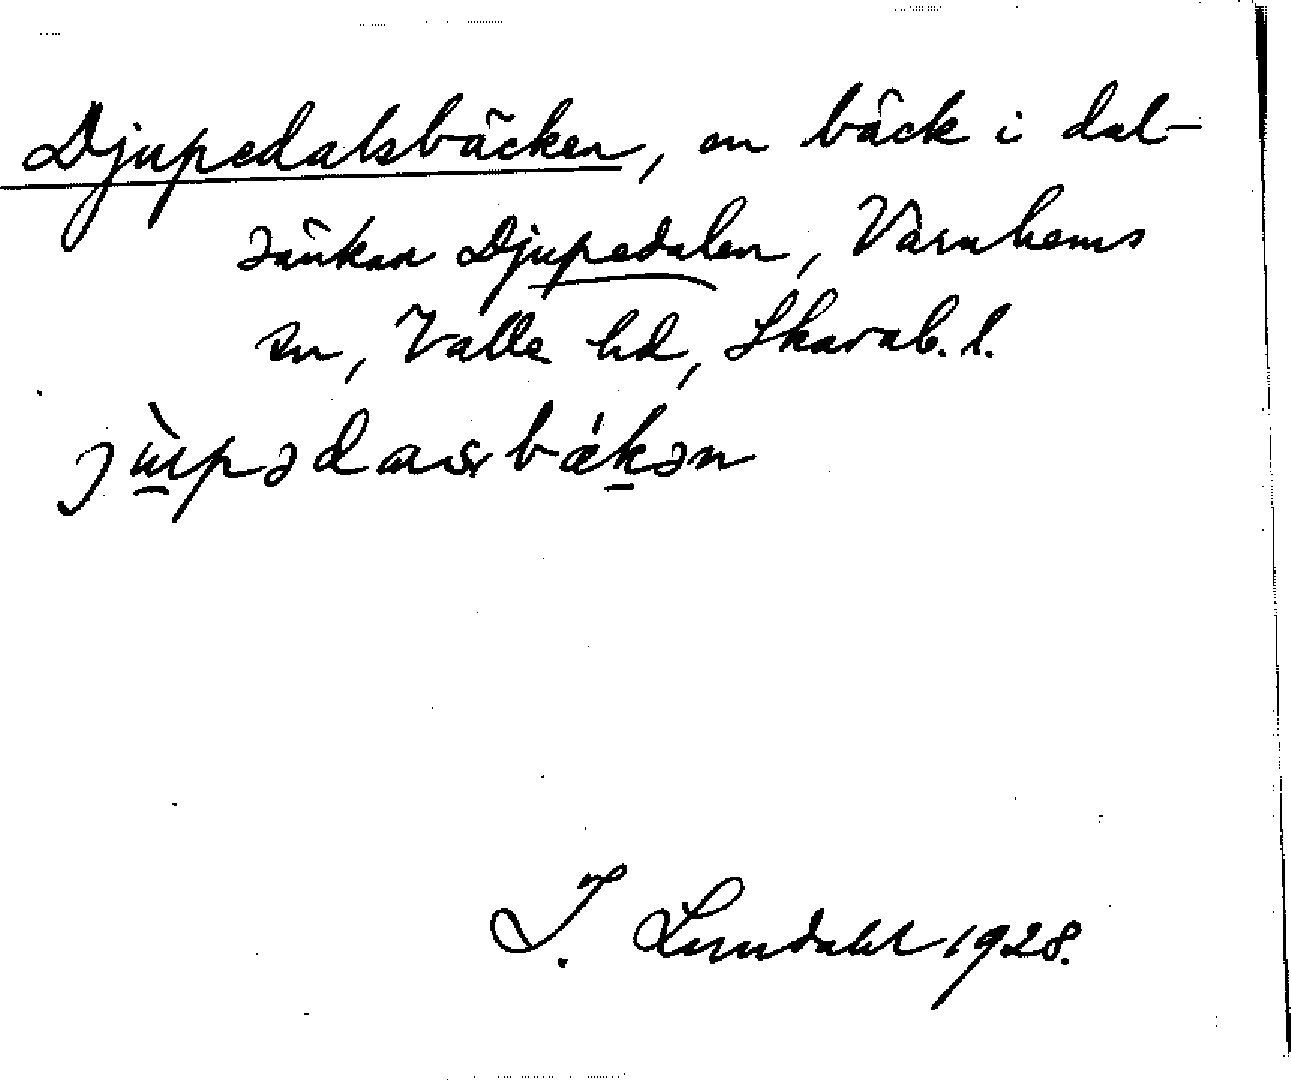 Djupedalsbäcken, en bäck i dal-
sänkan Djupedalen, Varnhems
sn, Valle hd, Skarab. l.
I. Lundahl 1928.